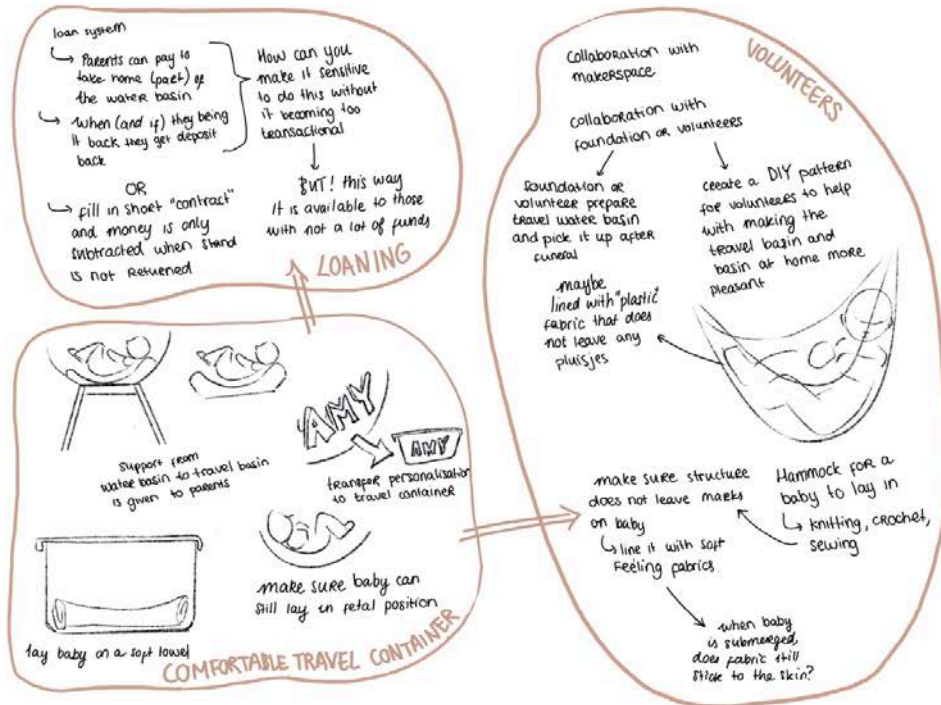 loan system
Parents can pay to
take home (part) of
the water basin
When (and if) they being
it back they get deposit
back
OR
fill in short "contract"
and money is only
subtracted when stand
is not returned
How can you
make it sensitive
to do this without
it becoming too
transactional
BUT! this way
it is available to those
with not a lot of funds
LOANING
support from
water basin to travel basin
is given to parents
AMY
AMY
transfer personalisation
to travel container
lay baby on a soft towel
make sure baby can
still lay in fetal position
COMFORTABLE TRAVEL CONTAINER
VOLUNTEERS
Collaboration with
makerspace
collaboration with
foundation or volunteers
foundation or
volunteer prepare
travel water basin
and pick it up after
funeral
create a DIY pattern
for volunteers to help
with making the
travel basin and
basin at home more
pleasant
maybe
lined with "plastic"
fabric that does
not leave any
pluisjes
make sure structure
does not leave marks
on baby
line it with soft
feeling fabrics
Hammock for a
baby to lay in
knitting, crochet,
sewing
when baby
is submerged,
does fabric still
stick to the skin?